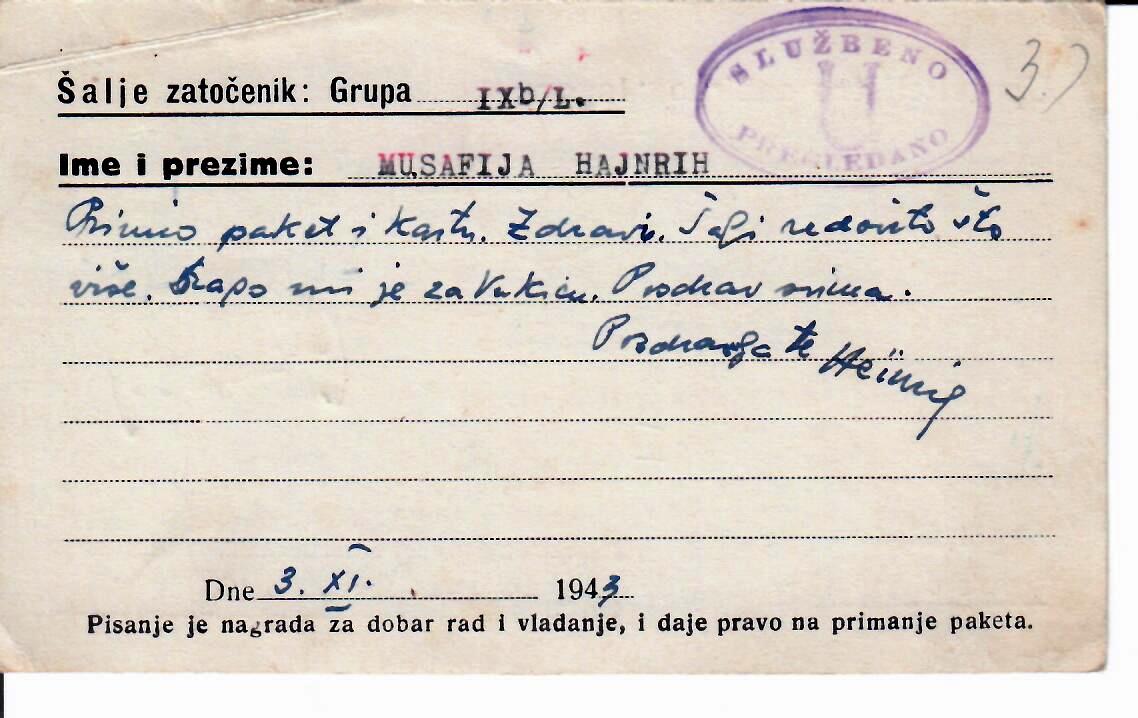 SLUŽBENO
PREGLEDANO
3.)
Šalje zatočenik: Grupa IXb/L.
Ime i prezime: MUSAFIJA HAJNRIH
Primio paket i kartu. Zdravi. Šalji redovito što
više. Drago mi je za Vukicu. Pozdrav svima.
Pozdravlja te
Dne 3. XI. 1943
Pisanje je nagrada za dobar rad i vladanje, i daje pravo na primanje paketa.